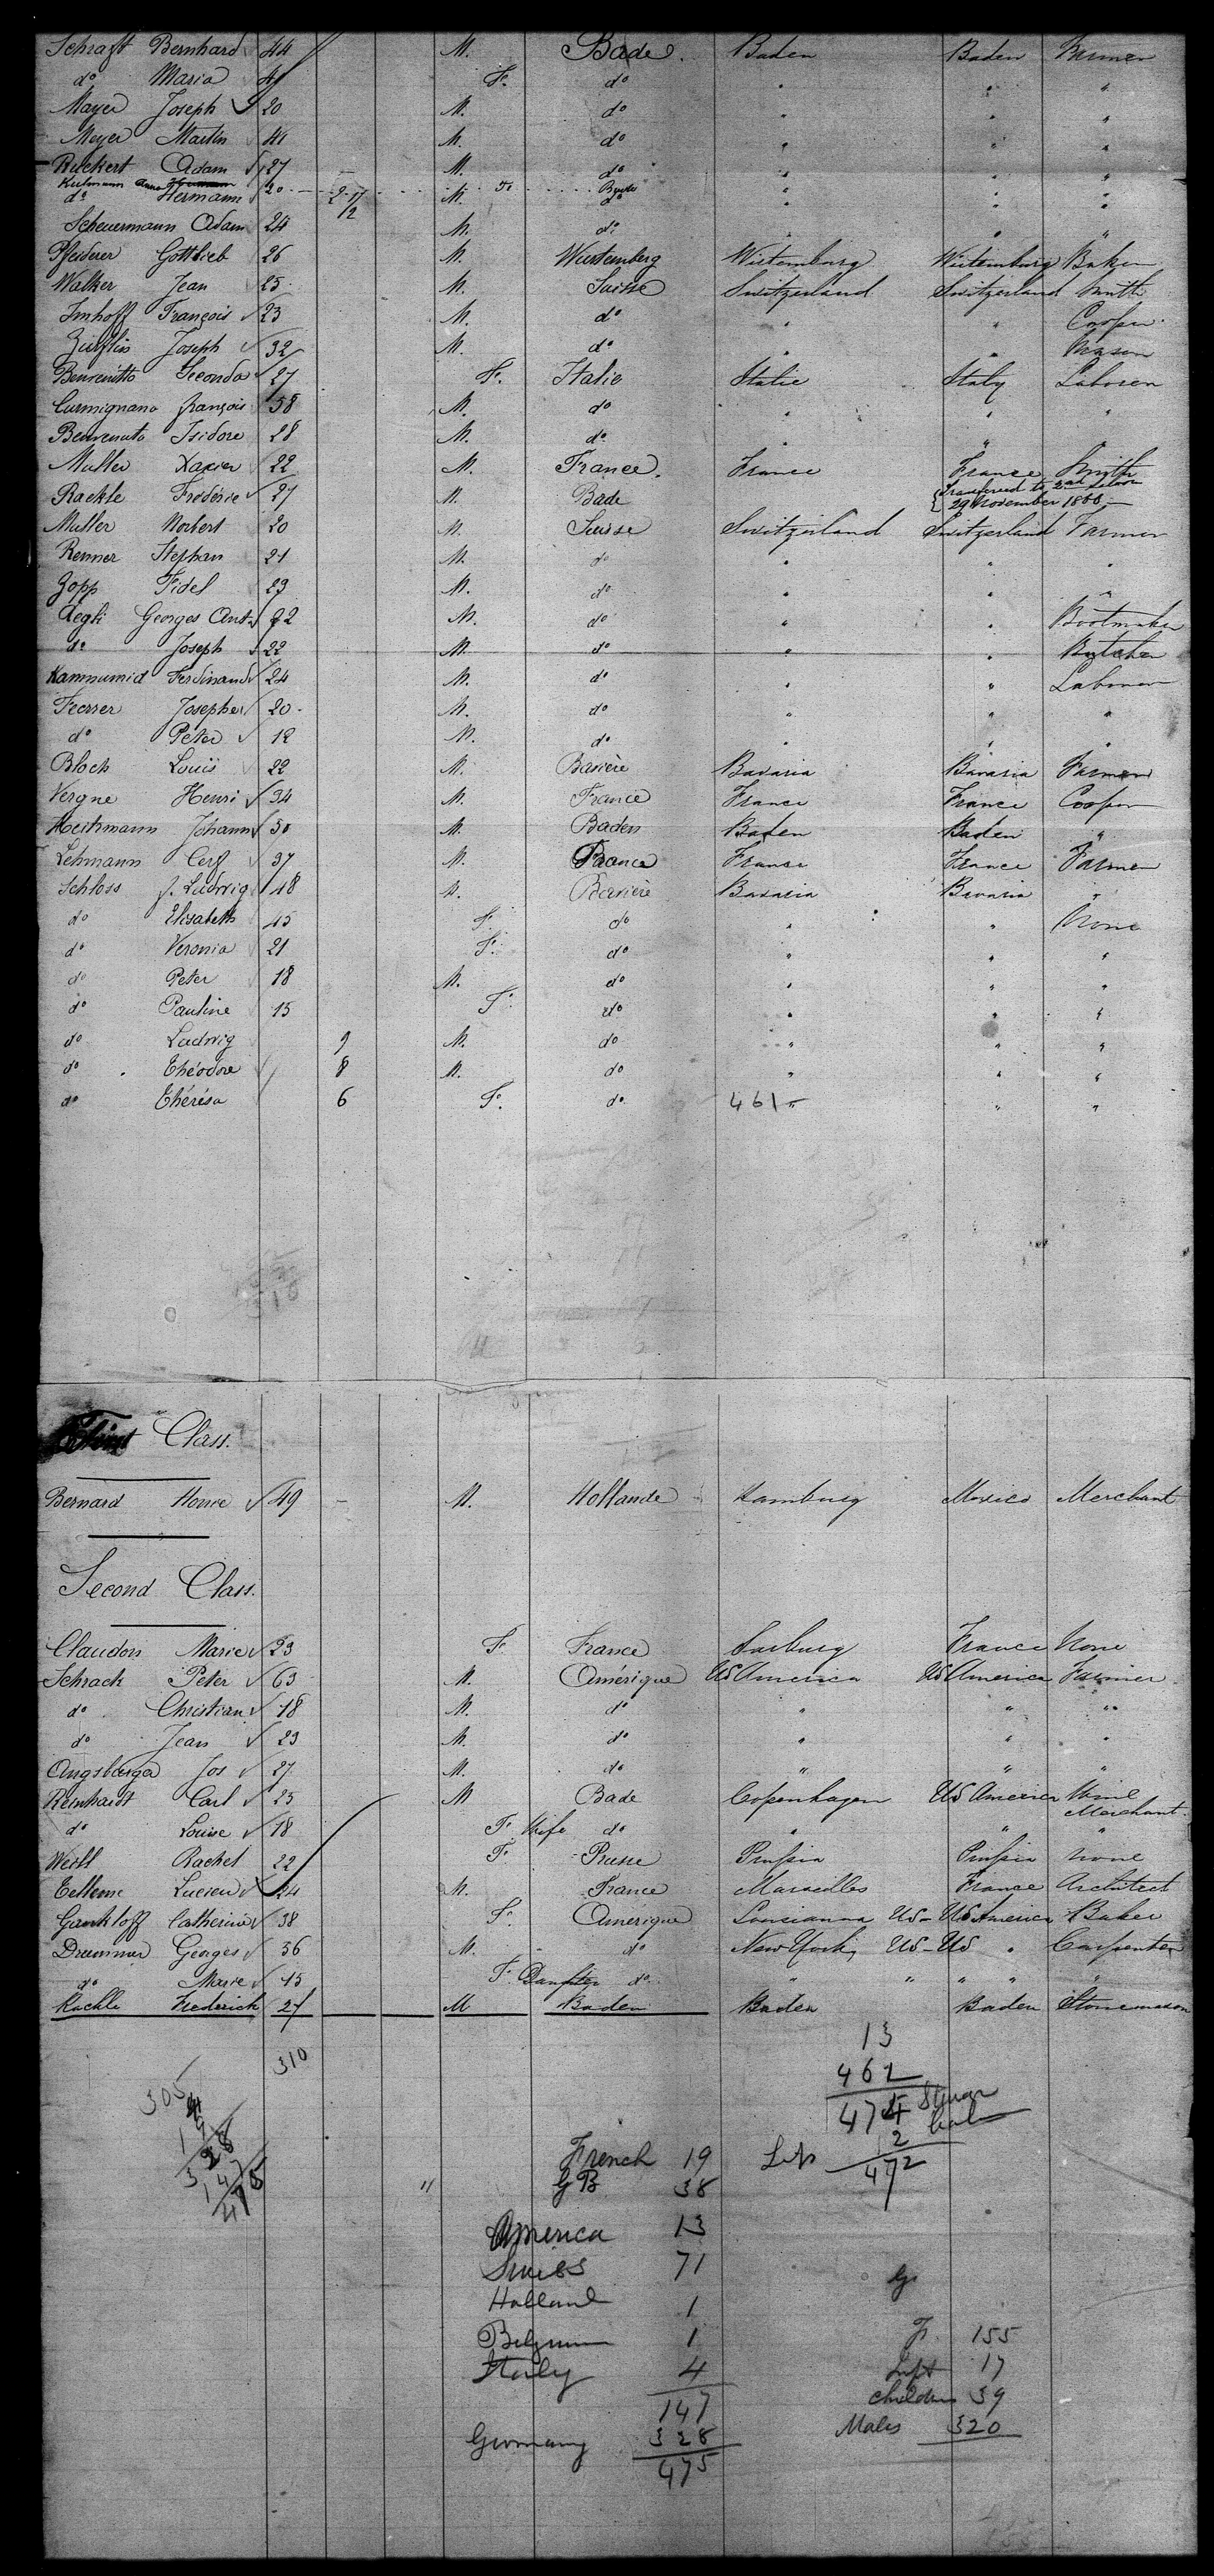 Schraft Bernhard 44 M. Bade. Baden Baden Farmer
do Maria F. do " " "
Mayer Joseph 20 M. do " " "
Meyer Martin M. do " " "
Ruckert Adam 27 M. do " " "
Kulmann Anna 20 F.
do Hermann M. do " " "
Scheuermann Adam 24 M. do " "
Pfeiderer Gottlieb 26 M. Wurtemberg Wirtemburg Wirtemburg Baker
Walker Jean 25 M. Suisse Switzerland Switzerland Smith
Imhoff François 23 M. do " " Cooper
Zurflin Joseph 32 M. do " " Mason
Benvenitto Seconda 27 F. Italie Italie Italy Laborer
Curmignano françois 58 M. do " " "
Benvenuto Isidore 28 M. do " " "
Muller Xavier 22 M. France. France France Smith
Rackle Fréderic 27 M. Bade Transferred to 2nd
29 November 1866
Muller Norbert 20 M. Suisse Switzerland Switzerland Farmer
Renner Stephan 21 M. do " " "
Zopp Fidel 23 M. do " " "
Aegli Georges Ant. 22 M. do " " Bootmaker
do Joseph 22 M. do " " Butcher
Kammumid Ferdinand 24 M. do " " Laborer
Feerser Josepher 20 M. do " " "
do Peter 12 M. do " " "
Bloch Louis 22 M. Bavière Bavaria Bavaria Farmer
Vergne Henri 34 M. France France France Cooper
Heitzmann Johann 30 M. Baden Baden Baden "
Lehmann Cerf 37 M. France France France Farmer
Schloss J. Ludwig 48 M. Bavière Bavaria Bavaria "
do Elisabeth 45 F. do " " None
do Veronia 21 F. do " " "
do Peter 18 M. do " " "
do Pauline 15 F. do " " "
do Ludwig 9 M. do " " "
do Théodore 8 M. do " " "
do Thérésa 6 F. do 461 " " "
First Class.
Bernard 49 M. Hollande Hamburg Mexico Merchant
Second Class.
Claudon Marie 23 F. France Sarburg France None
Schrack Peter 63 M. Amérique US America US America Farmer
do Christian 18 M. do " " "
do Jean 23 M. do " " "
Augsburger Jos 27 M. do " " "
Reinhardt Carl 25 M Bade Copenhagen US America Wine
Merchant
do Louise 18 F. Wife do " " "
Weill Rachel 22 F. Prusse Prussia Prussia None
Lucien 24 M. France Marseilles France Architect
Catherine 38 F. Amerique Louisianna US - US America Baker
Drummer Georges 36 M. do New York US - US " Carpenter
do Marie 15 F. Daughter do " " " " "
Rackle Frederick 27 M Baden Baden Baden Stonemason
310
13
462
474
2
472
305
328
147
475
French 19
GB 38
America 13
Swiss 71
Holland 1
Belgium 1
Italy 4
147
Germany 328
475
F. 155
Inft 17
children 39
Males 320